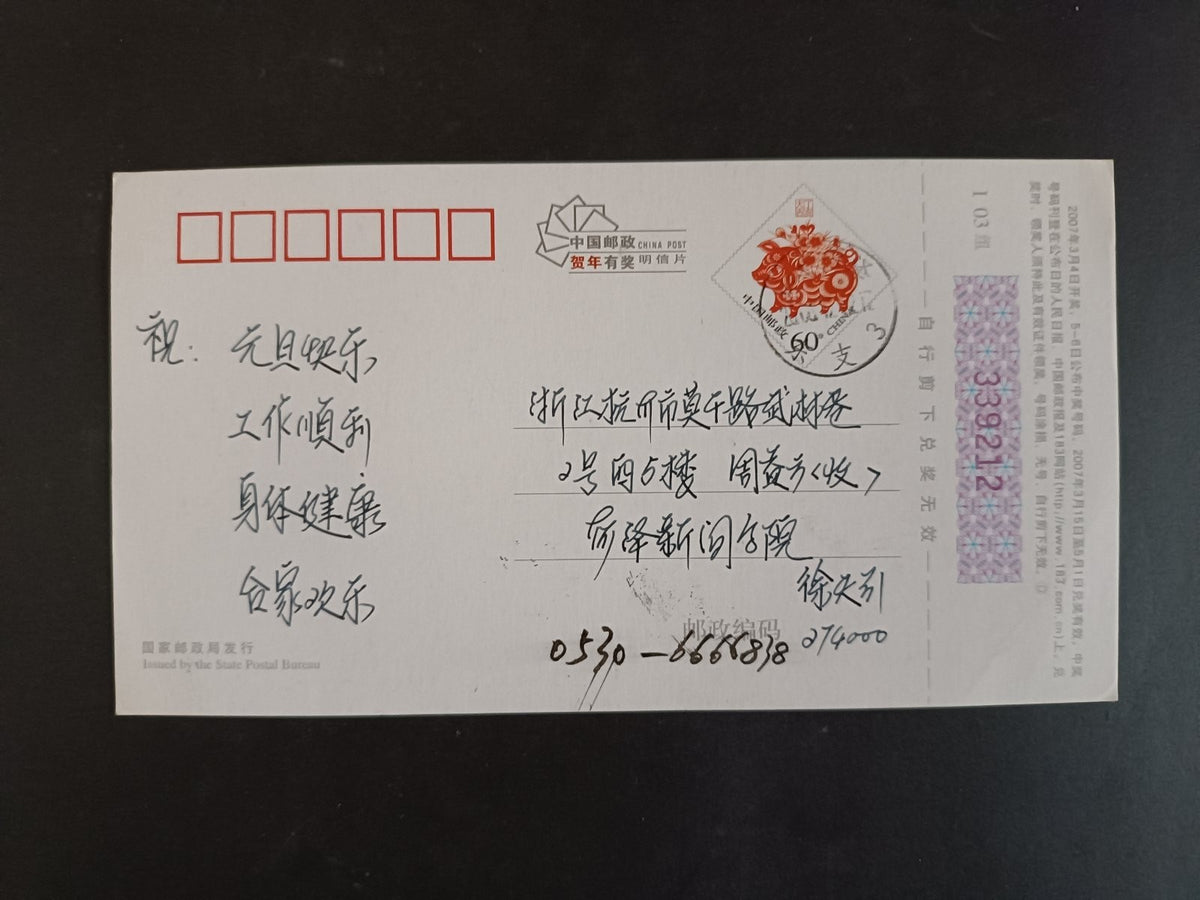 中国邮政 CHINA POST
贺年有奖 明信片
中国邮政 60分 CHINA
支 3
祝: 元旦快乐
工作顺利
身体健康
合家欢乐
浙江杭州市莫干路武林巷
2号西5楼 周益 <收>
菏泽新闻学院
徐
邮政编码 274000
0530-6666838
国家邮政局发行
Issued by the State Postal Bureau
自行剪下兑奖无效
1 03 组
339212
2007年3月4日开奖,5-6日公布中奖号码,2007年3月15日至5月1日兑奖有效。中奖
号码刊登在公布日的人民日报、中国邮政报及183网站(http://www.183.com.cn)上。兑
奖时,领奖人须持此及有效证件领奖。号码涂损、无号、自行剪下无效。